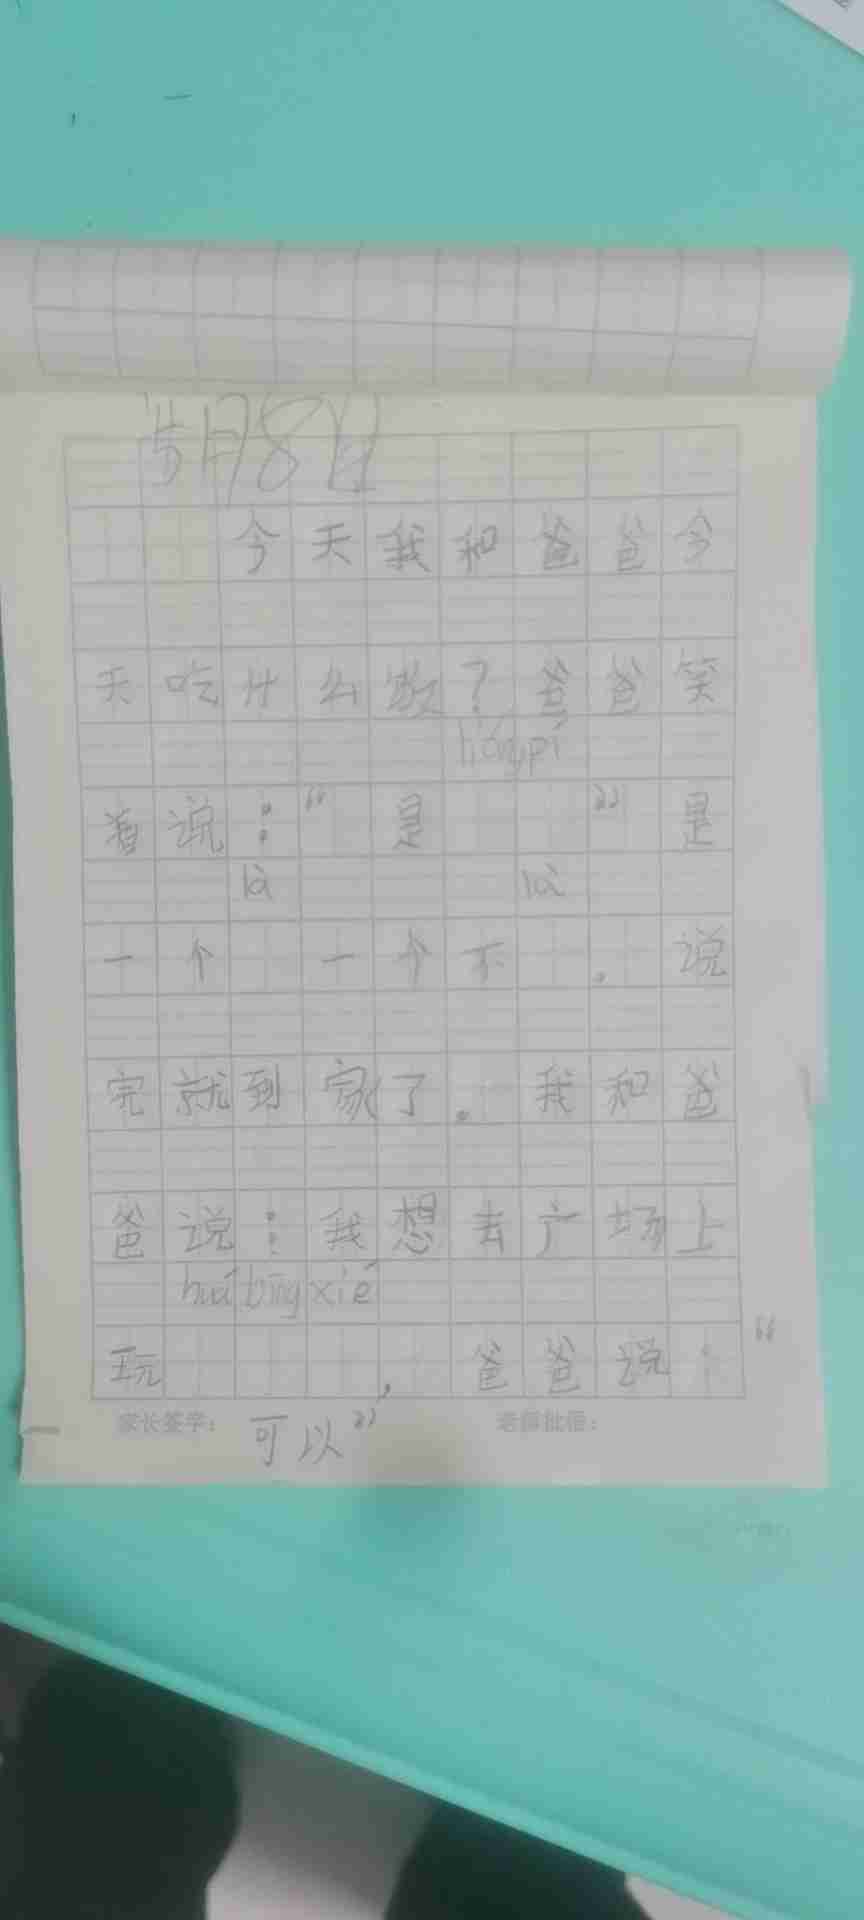 5月8日
今天我和爸爸今
天吃什么饭?爸爸笑
liángpí
着说:“是  ”是
là là
一个 一个不 。说
完就到家了。我和爸
爸说:我想去广场上
huá bīng xié
玩 , 爸爸说:“
家长签字: 可以” 老师批语: